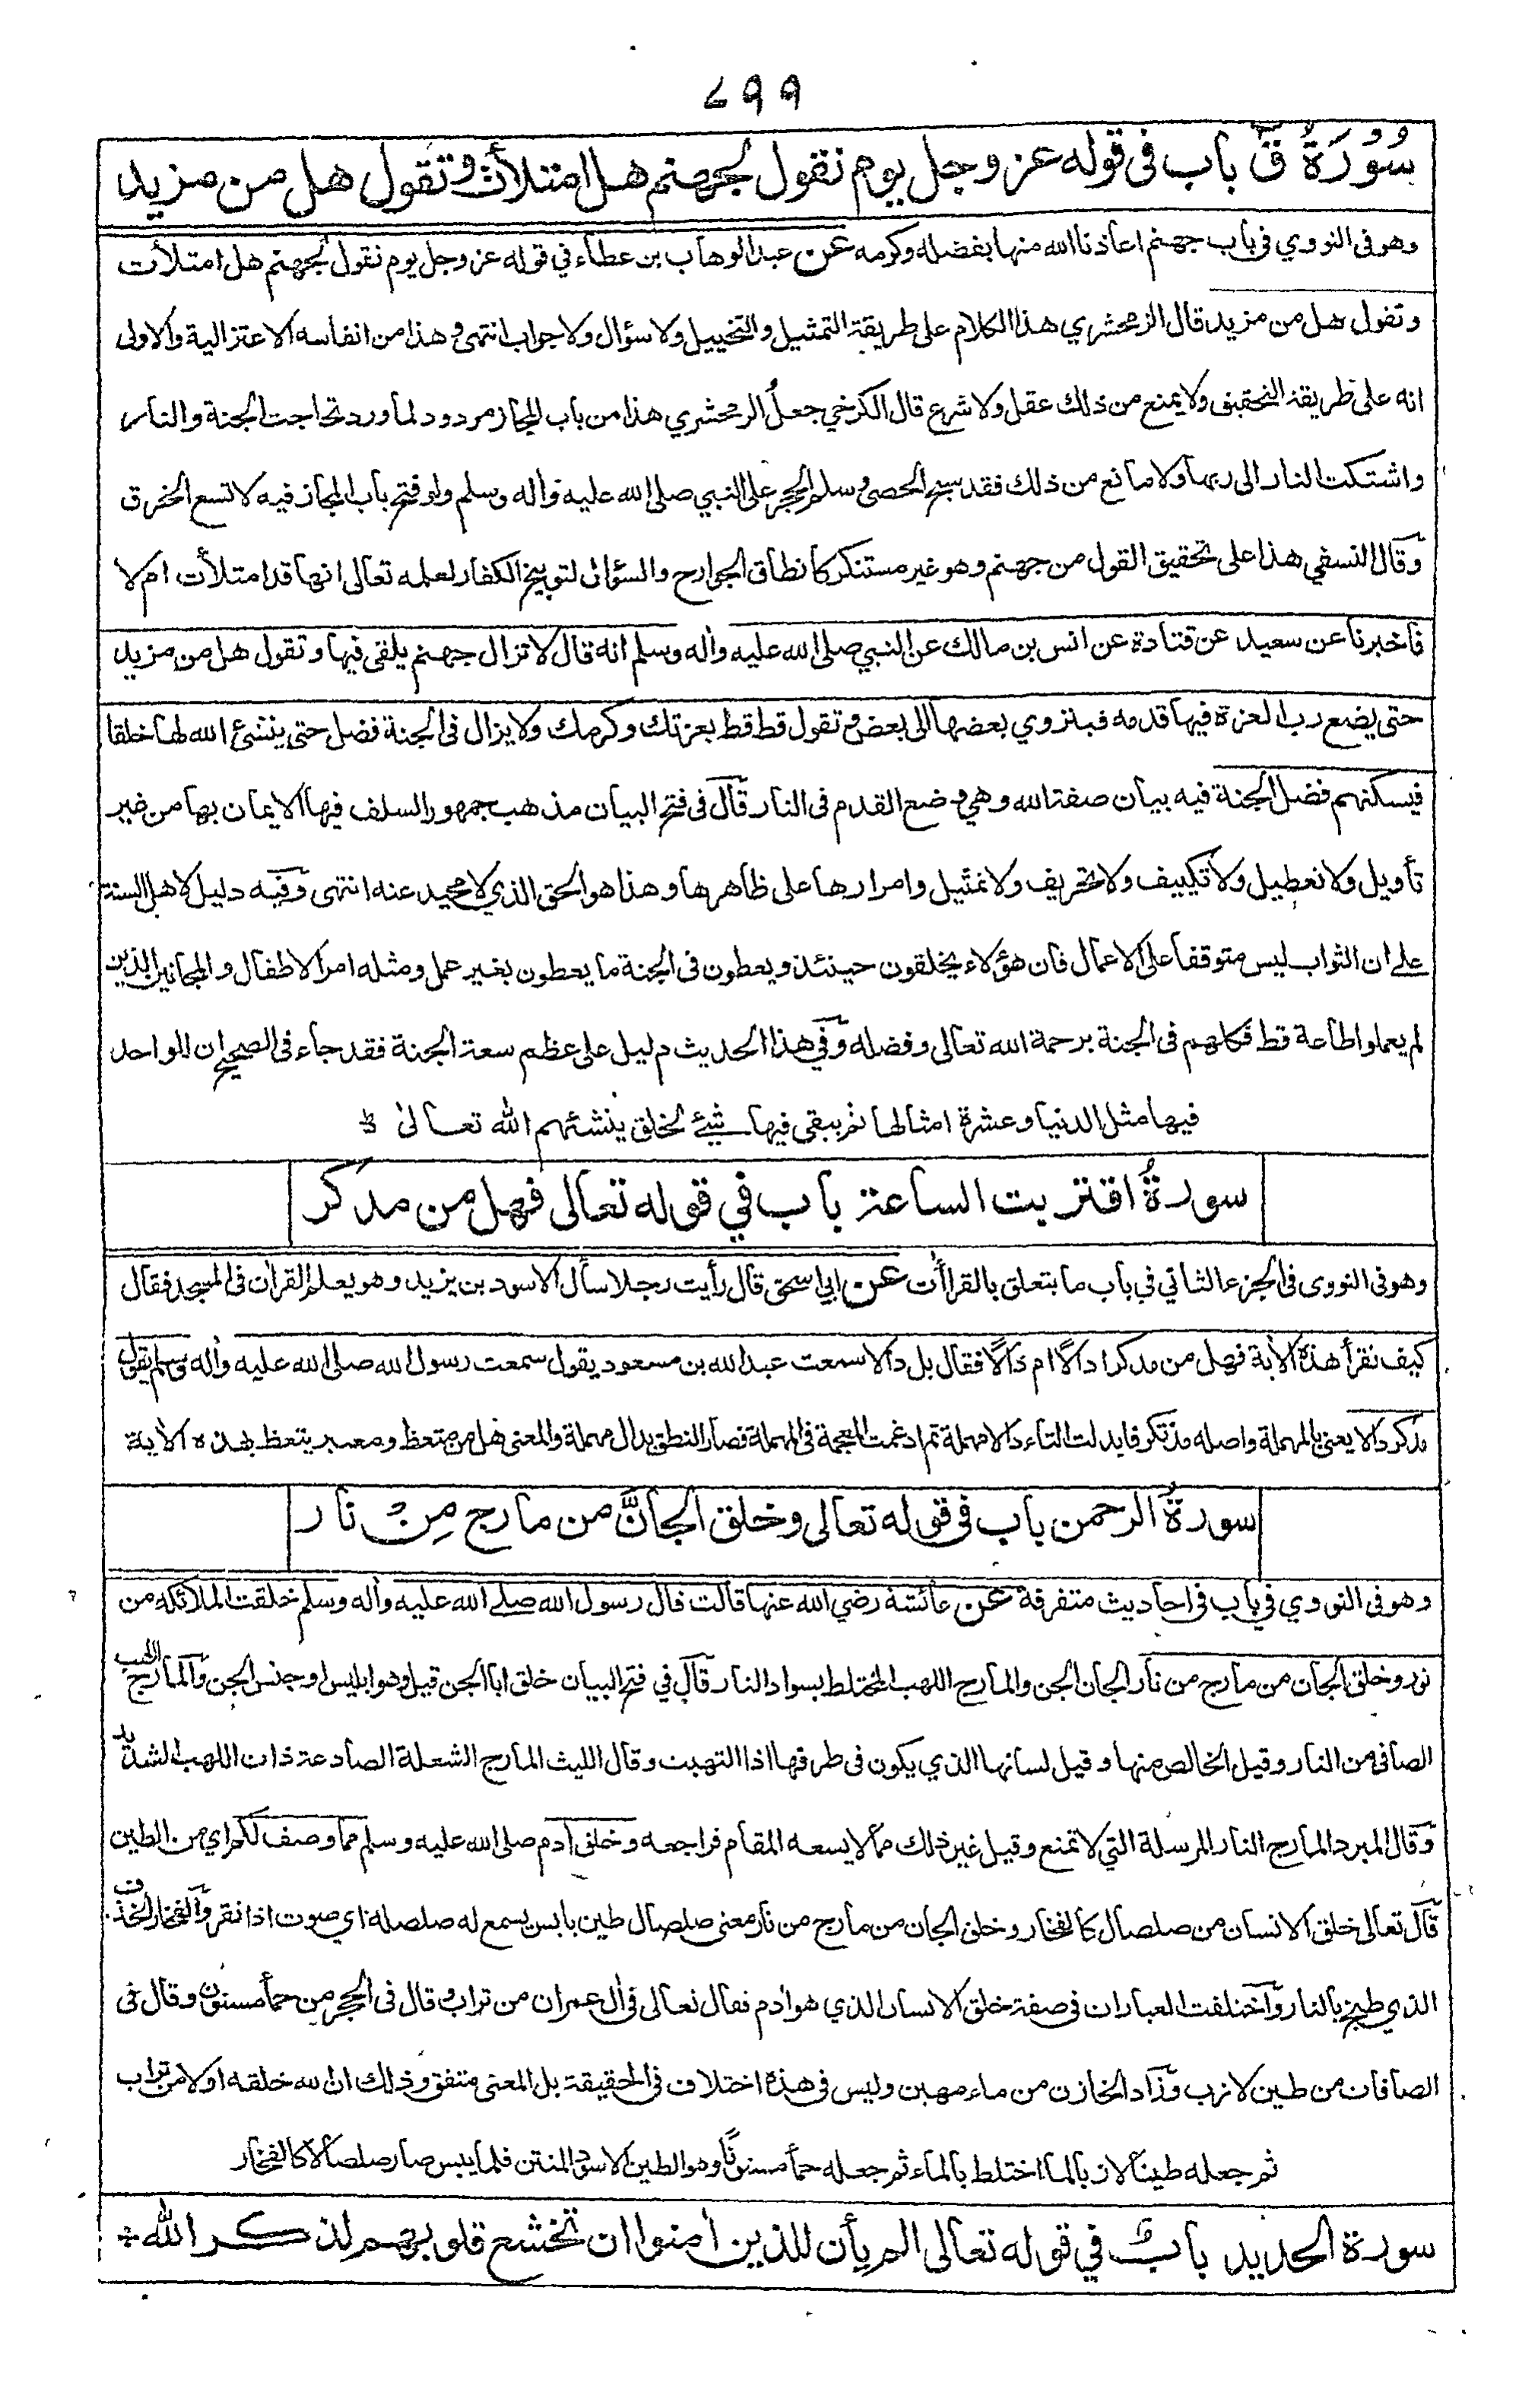 ٦٩٩
سُوْرَةُ قٓ باب فی قوله عز وجل یوم نقول لجهنم هل امتلأت وتقول هل من مزید
وهو فی النووي فی باب جهنم اعاذنا الله منها بفضله وكرمه عن عبد الوهاب بن عطاء في قوله عز وجل يوم نقول لجهنم هل امتلأت
وتقول هل من مزيد قال الزمخشري هذا الكلام على طريقة التمثيل والتخييل ولا سؤال ولا جواب انتهى وهذا من انفاسه الاعتزالية والاولى
انه على طريقة التحقيق ولا يمنع من ذلك عقل ولا شرع قال الكرخي جعل الزمخشري هذا من باب المجاز مردود لما ورد تحاجت الجنة والنار
واشتكت النار الى ربها ولا مانع من ذلك فقد سبح الحصى وسلم الحجر على النبي صلى الله عليه واٰله وسلم ولو فتح باب المجاز فيه لاتسع الخرق
وقال النسفي هذا على تحقيق القول من جهنم وهو غير مستنكر كانطاق الجوارح والسؤال لتوبيخ الكفار لعلمه تعالى انها قد امتلأت ام لا
فاخبرنا عن سعيد عن قتادة عن انس بن مالك عن النبي صلى الله عليه واٰله وسلم انه قال لا تزال جهنم يلقى فيها وتقول هل من مزيد
حتى يضع رب العزة فيها قدمه فينزوي بعضها الى بعض وتقول قط قط بعزتك وكرمك ولا يزال فى الجنة فضل حتى ينشئ الله لها خلقا
فيسكنهم فضل الجنة فيه بيان صفة الله وهي وضع القدم فى النار قال فى فتح البيان مذهب جمهور السلف فيها الايمان بها من غير
تأويل ولا تعطيل ولا تكييف ولا تحريف ولا تمثيل وامرارها على ظاهرها وهذا هو الحق الذي لا محيد عنه انتهى وفيه دليل لاهل السنة
على ان الثواب ليس متوقفا على الاعمال فان هؤلاء يخلقون حينئذ ويعطون فى الجنة ما يعطون بغير عمل ومثله امر الاطفال والمجانين الذين
لم يعملوا طاعة قط فكلهم فى الجنة برحمة الله تعالى وفضله وفي هذا الحديث دليل على عظم سعة الجنة فقد جاء فى الصحيح ان للواحد
فيها مثل الدنيا وعشرة امثالها ثم يبقى فيها شيئ لخلق ينشئهم الله تعالىٰ
سورةُ اقتربت الساعة باب في قوله تعالى فهل من مدكر
وهو فى النووى فى الجزء الثاني في باب ما يتعلق بالقراأت عن ابي اسحق قال رأيت رجلا سأل الاسود بن يزيد وهو يعلم القراٰن فى المسجد فقال
كيف نقرأ هذه الاٰية فهل من مدكر ا دالًا ام ذالًا فقال بل دالا سمعت عبد الله بن مسعود يقول سمعت رسول الله صلى الله عليه واٰله وسلم يقول
مدكر دالا يعنى بالمهملة واصله مذتكر فابدلت التاء دالا مهملة ثم ادغمت المعجمة فى المهملة فصار النطق بدال مهملة والمعنى هل من متعظ ومعتبر يتعظ بهذه الاٰية
سورةُ الرحمن باب فى قوله تعالى وخلق الجانَّ من مارج مِنْ نار
وهو فى النووي في باب فى احاديث متفرقة عن عائشة رضي الله عنها قالت قال رسول الله صلى الله عليه واٰله وسلم خلقت الملائكة من
نور وخلق الجان من مارج من نار الجان الجن والمارج اللهب المختلط بسواد النار قال في فتح البيان خلق ابا الجن قيل وهو ابليس او جنس الجن والمارج اللهب
الصافى من النار وقيل الخالص منها وقيل لسانها الذي يكون فى طرفها اذا التهبت وقال الليث المارج الشعلة الصادعة ذات اللهب الشديد
وقال المبرد المارج النار المرسلة التي لا تمنع وقيل غير ذلك مما لا يسعه المقام فراجعه وخلق اٰدم صلى الله عليه وسلم مما وصف لكم اي من الطين
قال تعالى خلق الانسان من صلصال كالفخار وخلق الجان من مارج من نار معنى صلصال طين يابس يسمع له صلصلة اي صوت اذا نقر والفخار الخذف
الذي طبخ بالنار واختلفت العبارات فى صفة خلق الانسان الذي هو اٰدم فقال تعالى فى اٰل عمران من تراب وقال فى الحجر من حمأ مسنون وقال فى
الصافات من طين لازب وزاد الخازن من ماء مهين وليس فى هذه اختلاف فى الحقيقة بل المعنى متفق وذلك ان الله خلقه اولا من تراب
ثم جعله طينًا لازبا لما اختلط بالماء ثم جعله حمأ مسنونًا وهو الطين الاسود المنتن فلما يبس صار صلصالًا كالفخار
سورة الحديد بابٌ في قوله تعالى الم يأن للذين اٰمنوا ان تخشع قلوبهم لذكر الله